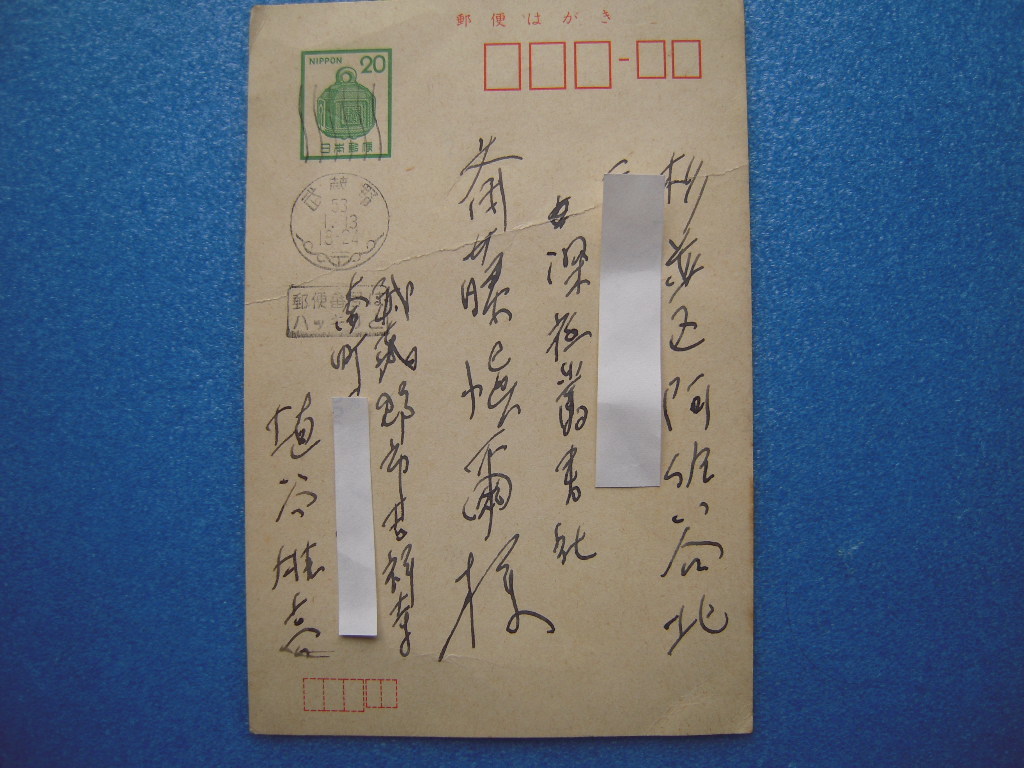 郵便はがき
NIPPON 20
日本郵便
武蔵野
53
1.13
18-24
郵便番号は
ハッキリと
杉並区阿佐谷北
深夜叢書社
斎藤慎爾様
武蔵野市吉祥寺
南町
埴谷雄高